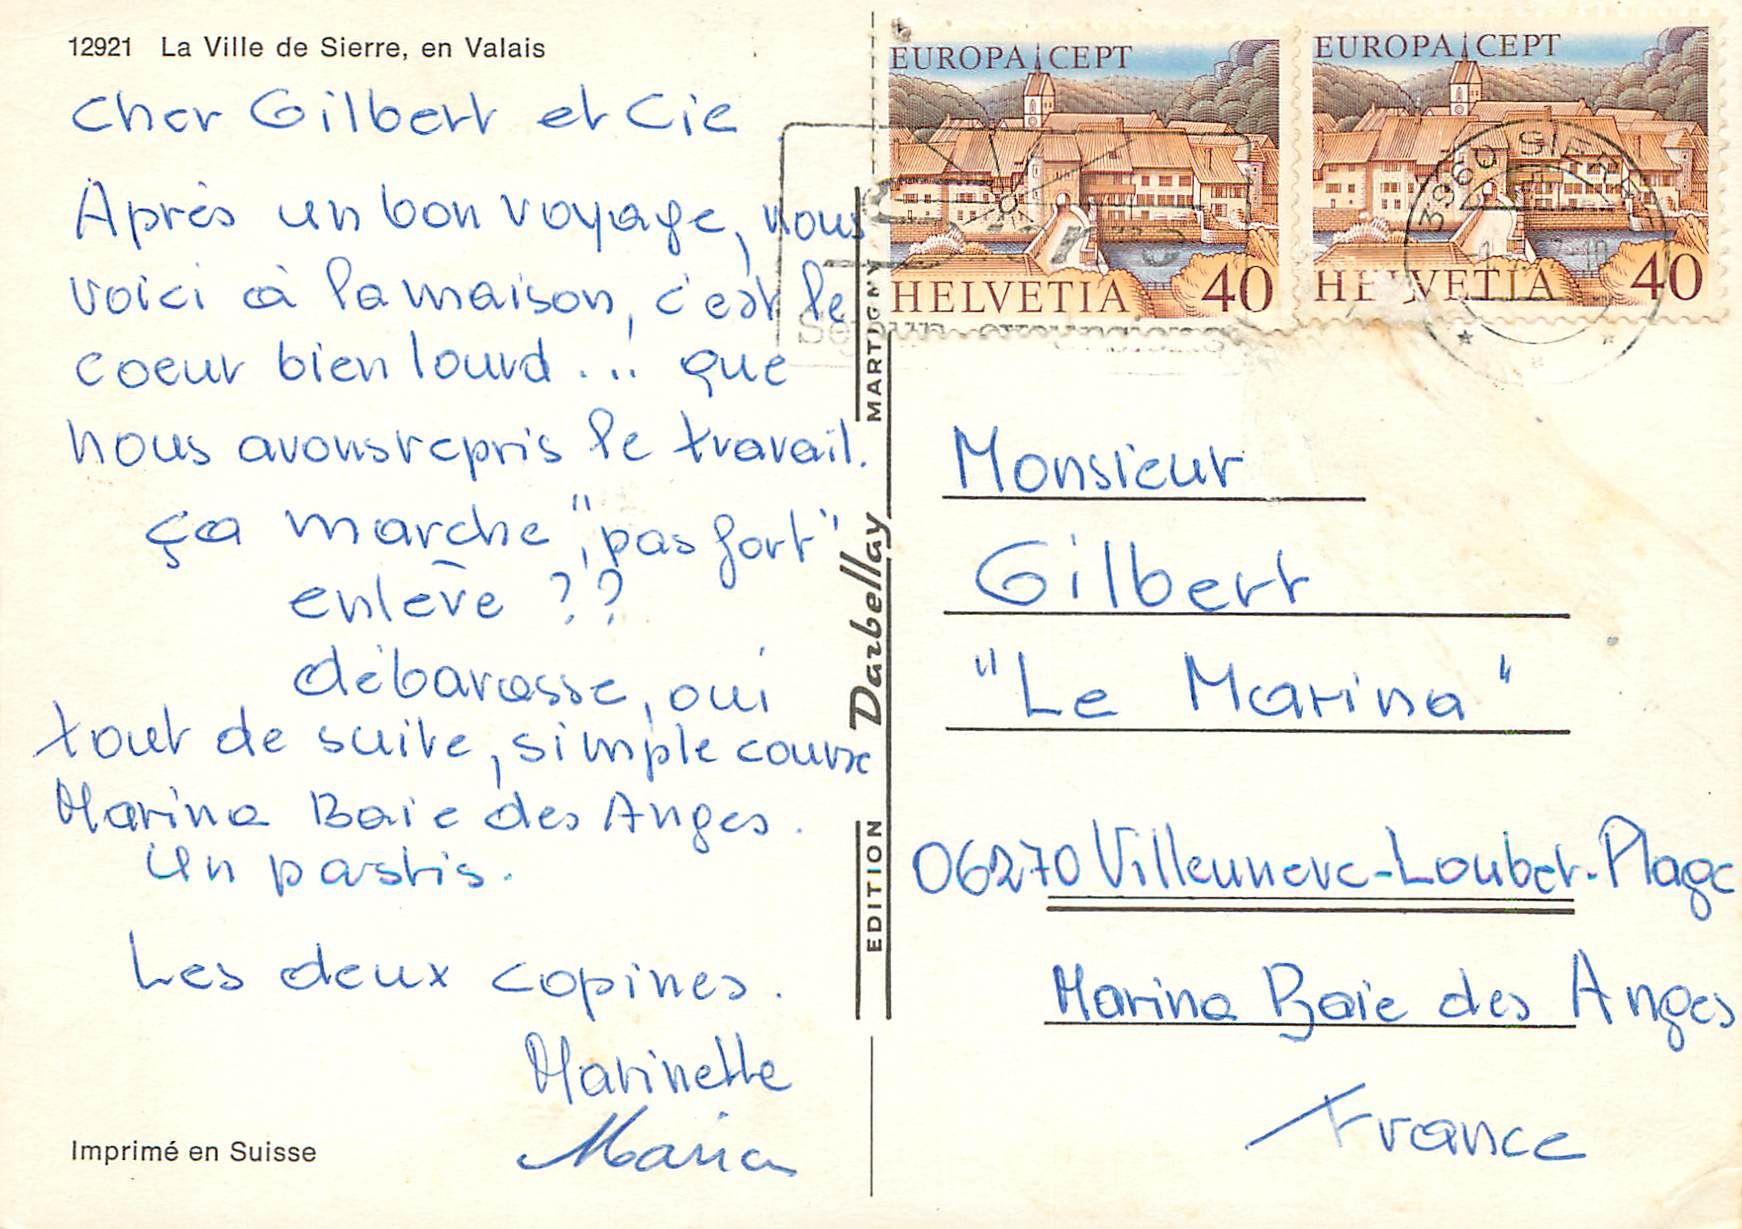 12921 La Ville de Sierre, en Valais
Cher Gilbert et Cie
Après un bon voyage, nous
voici à la maison, c'est le
coeur bien lourd... que
nous avons repris le travail.
ça marche "pas fort"
enlève ??
débarasse, oui
tout de suite, simple course
Marina Baie des Anges.
Un pastis.
Les deux copines.
Marinette
Maria
Imprimé en Suisse
EDITION Darbellay MARTIGNY
EUROPA CEPT
HELVETIA 40
EUROPA CEPT
HELVETIA 40
3960 SIERRE
Monsieur
Gilbert
"Le Marina"
06270 Villeuneve-Loubet-Plage
Marina Baie des Anges
France